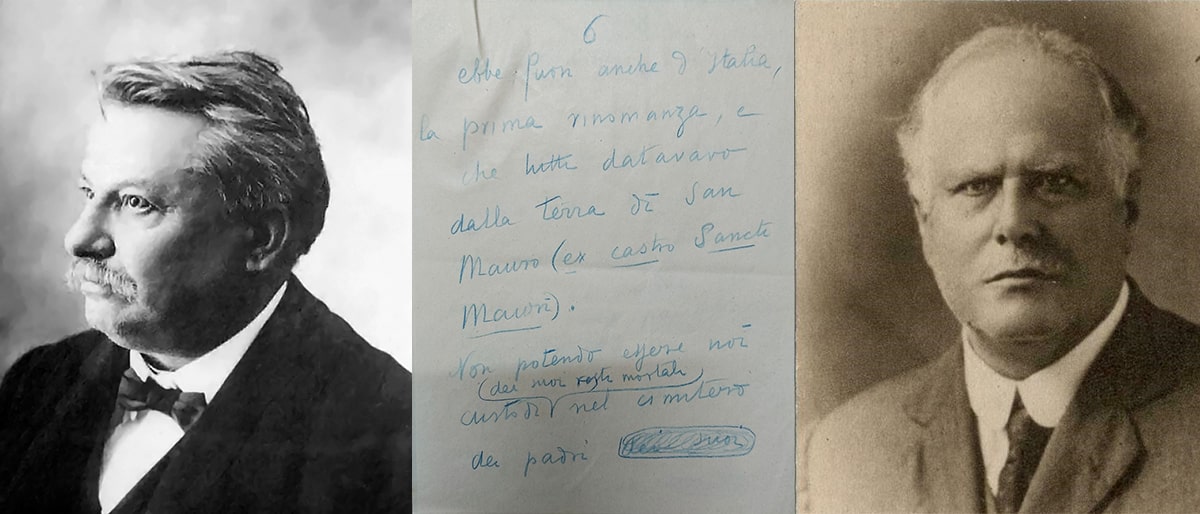 6
ebbe fuori anche d'Italia,
la prima rinomanza, e
che tutti datavavo
dalla terra di San
Mauro (ex castro Sancti
Mauri).
Non potendo essere noi
(dei suoi resti mortali)
custodi nel cimitero
dei padri